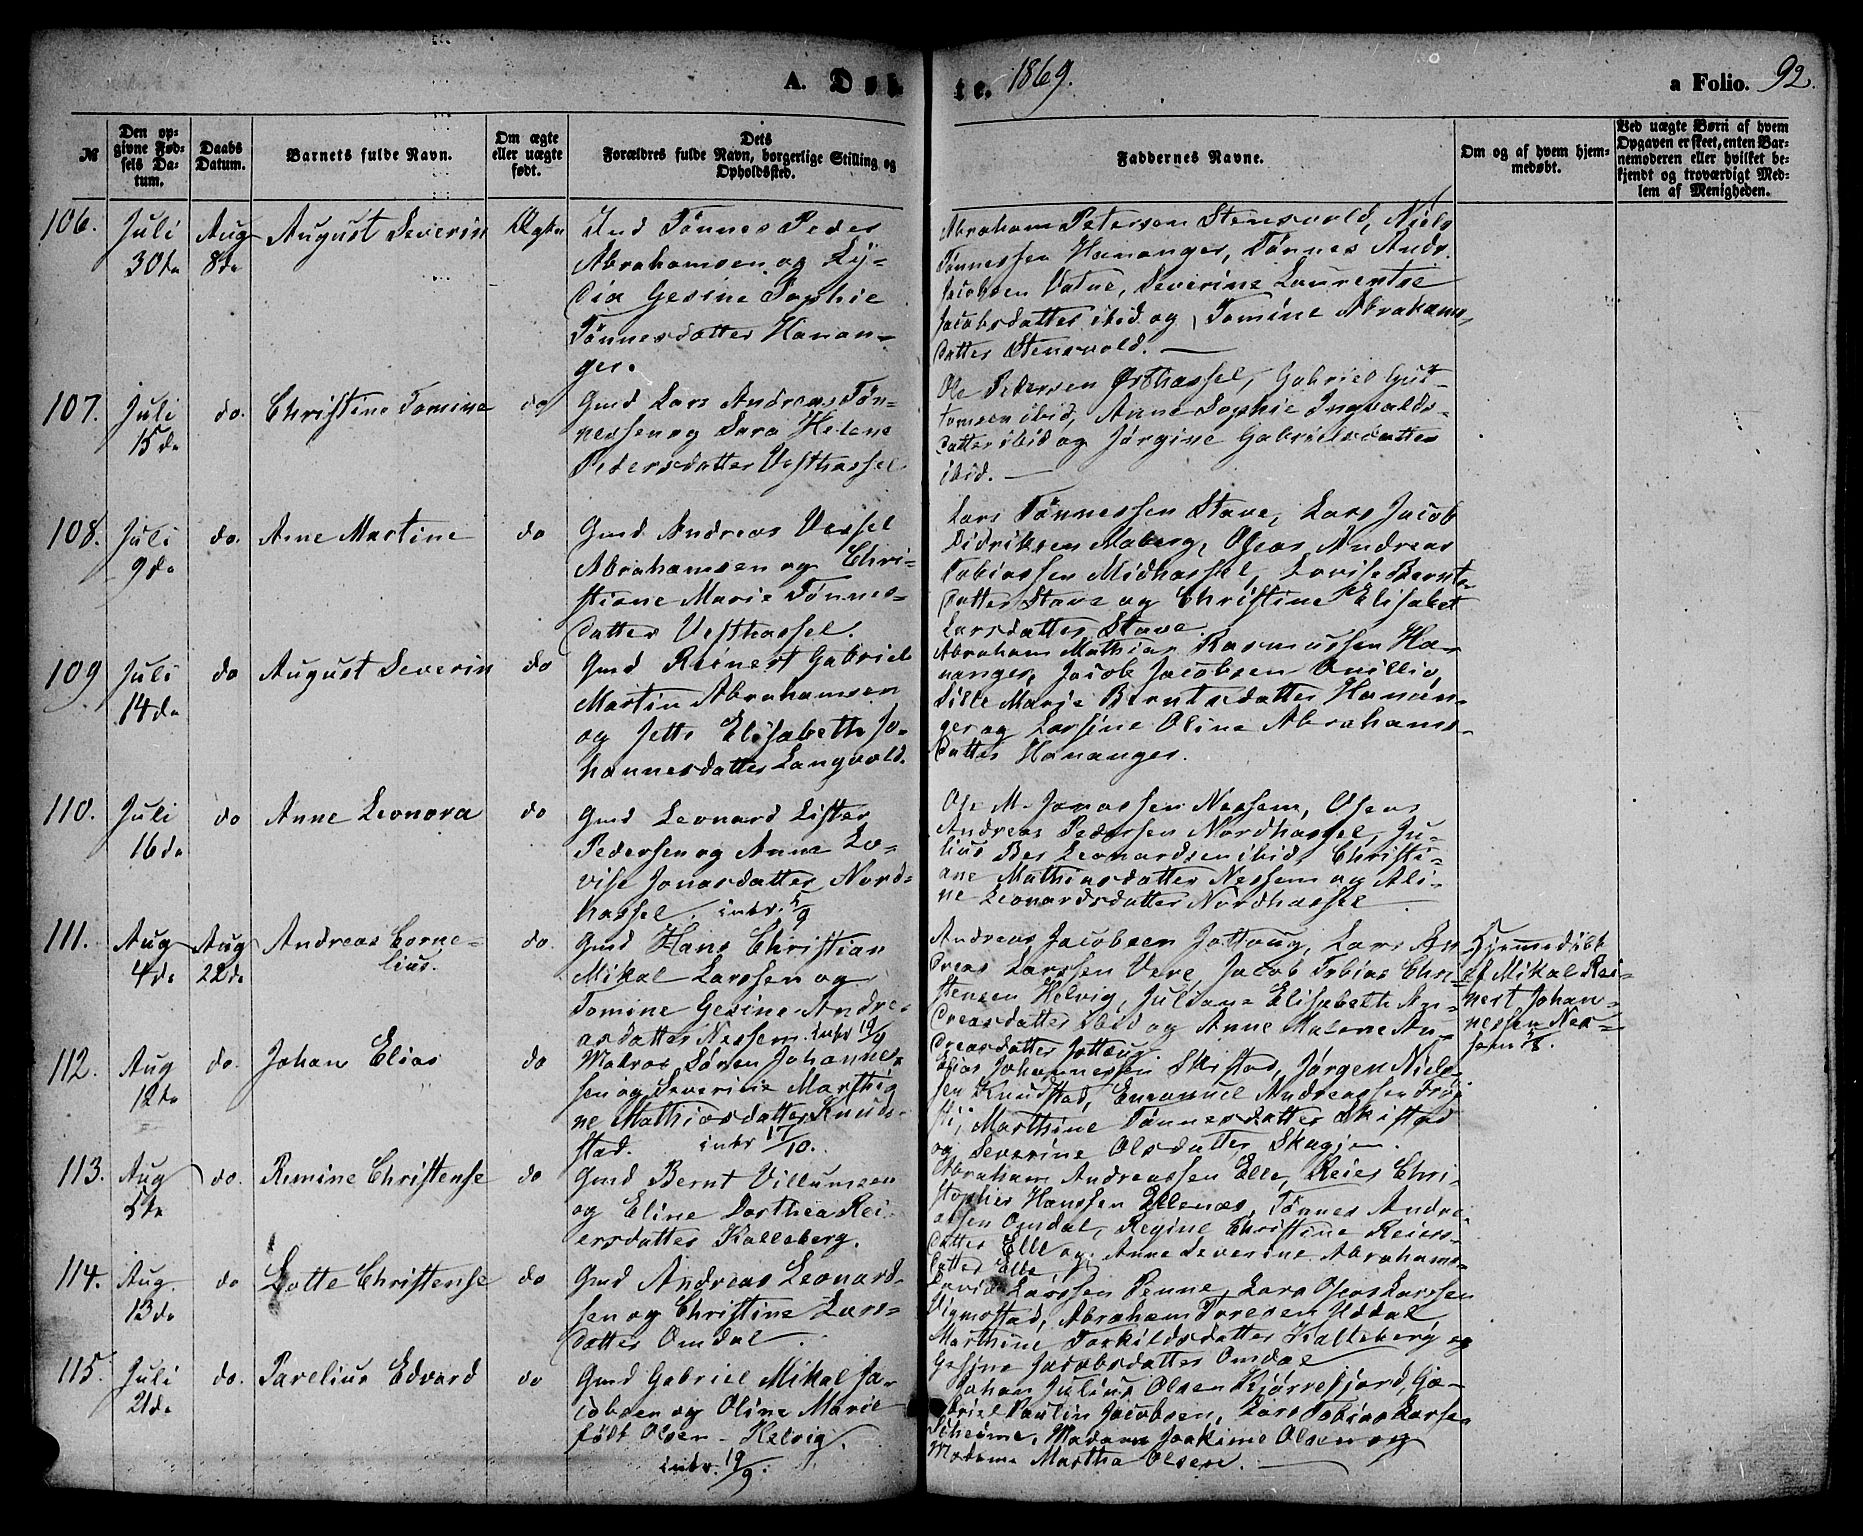 A. Døb
te. 1869.
a Folio. 92.
№
Den op-
givne Fød-
sels Da-
tum.
Daabs
Datum.
Barnets fulde Navn.
Om ægte
eller uægte
født.
Dets
Forældres fulde Navn, borgerlige Stilling og
Opholdssted.
Faddernes Navne.
Om og af hvem hjem-
medøbt.
Ved uægte Børn af hvem
Opgaven er skeet, enten Bar-
nemoderen eller hvilket be-
kjendt og troværdigt Med-
lem af Menigheden.
106.
Juli
30te
Aug
8de
August Severin
Ægte
Ind Tønnes Peder
Abrahamsen og Ly-
dia Gesine Sophie
Tønnesdatter Hanan-
ger.
Abraham Petersen Stensvold, Niels
Tønnessen Hananger, Tønnes Andr.
Jacobsen Vatne, Severine Laurentse
Jacobsdatter ibid og Tomine Abrahams-
datter Stensvold.
107.
Juli
15de
do.
Christine Tomine
do
Gmd Lars Andreas Tøn-
nessen og Sara Helene
Pedersdatter Vesthassel
Ole Pedersen Østhassel, Gabriel Gut-
tomsen ibid, Anne Sophie Ingvalds-
datter ibid og Jørgine Gabrielsdatter
ibid.
108.
Juli
9de
do.
Anne Martine
do
Gmd Andreas Vessel
Abrahamsen og Chri-
stiane Marie Tønnes-
datter Vesthassel.
Lars Tønnessen Stave, Lars Jacob
Didriksen Maberg, Oseas Andreas
Tobiassen Midhassel, Lovise Bernts-
datter Stave og Christine Elisabet
Larsdatter Stave.
109
Juli
14de
do
August Severin
do
Gmd Reinert Gabriel
Martin Abrahamsen
og Jette Elisabeth Jo-
hannesdatter Langvold.
Abraham Mathias Rasmussen Ha-
nanger, Jacob Jacobsen Qvillio,
Sille Marie Berntsdatter Hanan-
ger og Larsine Oline Abrahams-
datter Hananger.
110.
Juli
16de
do
Anne Leonora
do
Gmd Leonard Lister
Pedersen og Anne Lo-
vise Jonasdatter Nord-
hassel. intr. 5/9
Ole M. Jonassen Nessem, Oseas
Andreas Pedersen Nordhassel, Ju-
lius Ber Leonardsen ibid, Christi-
ane Mathiasdatter Nessem og Ali-
ne Leonardsdatter Nordhassel
111.
Aug
4de
Aug
22de
Andreas Corne-
lius.
do.
Gmd Hans Christian
Mikal Larssen og
Tomine Gesine Andre-
asdatter Nessem. intr 19/9
Andreas Jacobsen Jottaug, Lars An-
dreas Larssen Vere, Jacob Tobias Chri-
stensen Helvig, Juliane Elisabeth An-
dreasdatter ibid og Anne Malene An-
dreasdatter Jottaug.
Hjemmedøbt
af Mikal Rei-
nert Johan-
nessen Nes-
sem
112.
Aug
12te
do.
Johan Elias
do
Matros Søren Johannes-
sen og Severine Marthi-
ne Mathiasdatter Knud-
stad. intr 17/10.
Elias Johannessen Skistad, Jørgen Niels-
sen Knudstad, Emanuel Andreassen Trøj-
sti, Marthine Tønnesdatter Skistad
og Severine Olsdatter Skagje.
113.
Aug
5te
do.
Remine Christense
do
Gmd Bernt Villumsen
og Eline Dorthea Rei-
ersdatter Kalleberg.
Abraham Andreassen Elle, Reier Chri-
stopher Hanssen Ellenæs, Tønnes Andre-
assen Omdal, Regine Christine Reiers-
datter Elle og Anne Severine Abrahams-
datter Elle
114.
Aug.
13de
do
Lotte Christense
do
Gmd Andreas Leonard-
sen og Christine Lars-
datter Omdal.
David Larssen Penne, Lars Oseas Larssen
Vigmostad, Abraham Toresen Uddal
Marthine Torkildsdatter Kalleberg og
Gesine Jacobsdatter Omdal
115.
Juli
21de
do.
Parelius Edvard
do
Gmd Gabriel Mikal Ja-
cobsen og Oline Marie
født Olsen - Helvig.
intr. 19/9.
Johan Julius Olsen Kjørrefjord, Ga-
briel Paulin Jacobsen, Lars Tobias Larsen
Madam Joakime Olsen og
Madame Martha Olsen.